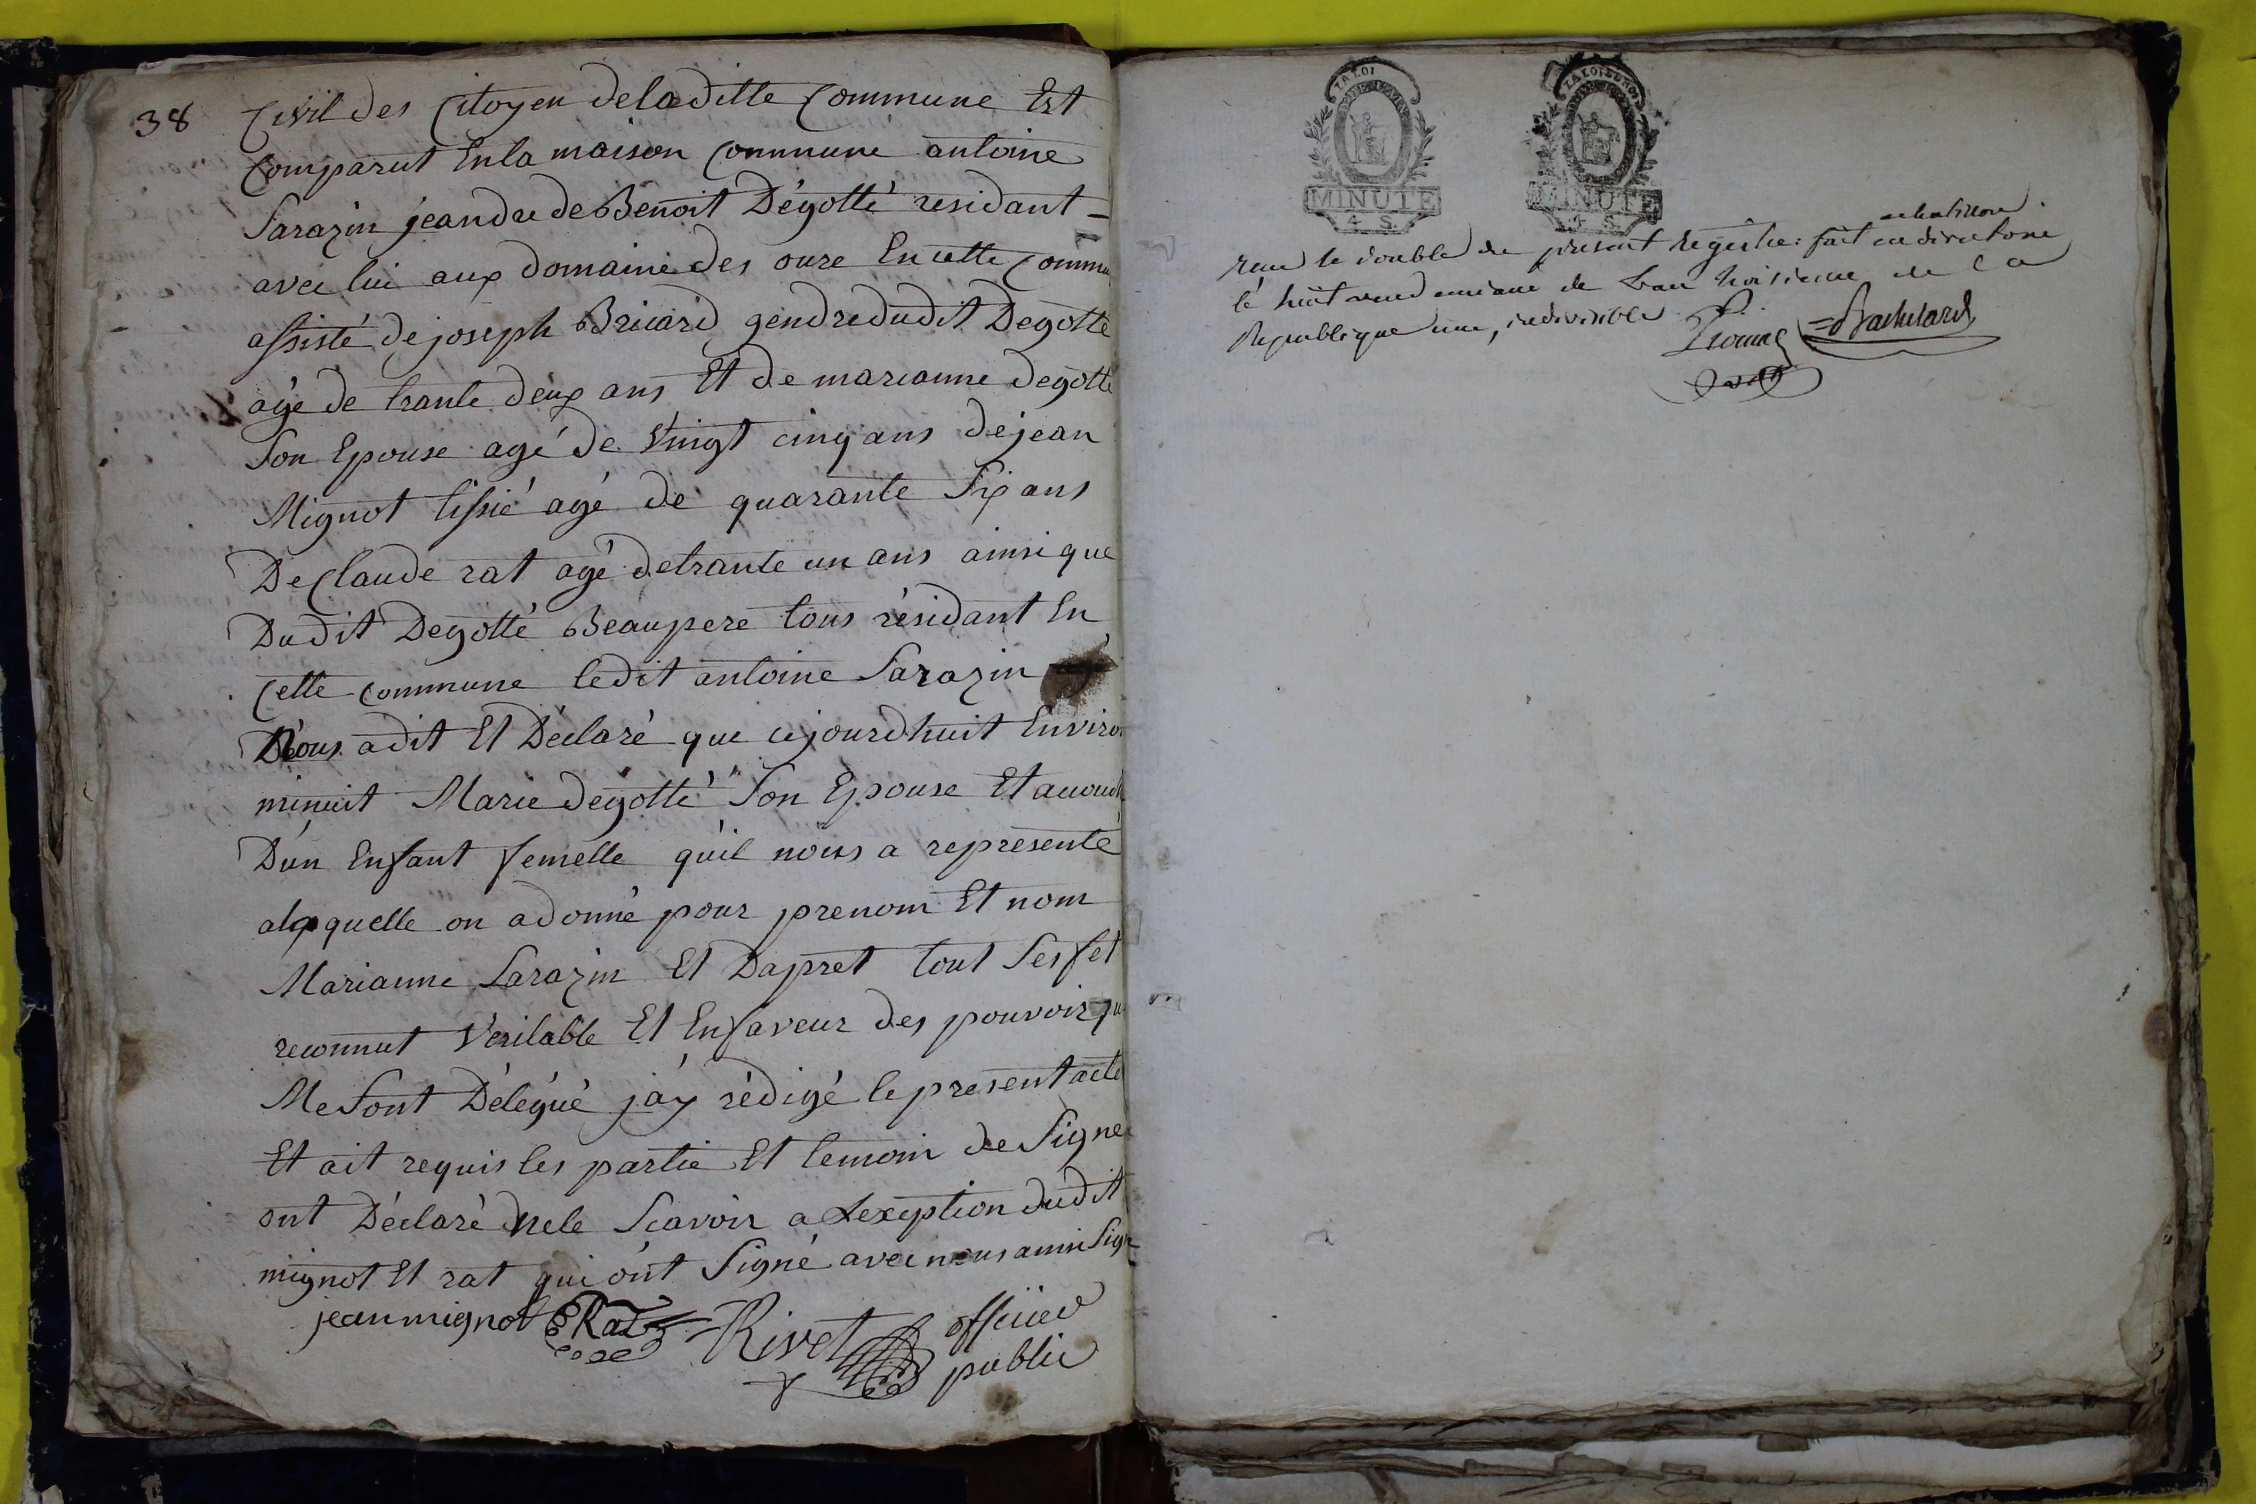 38
Civil des Citoyen deladitte Commune Est
Comparut Enla maison Commune antoine
Sarazin jeandre de Benoit Dégotté residant -
avec lui aux domaine des oure En cette Commu
assisté de joseph Bricard gendre dudit Degotté
agé de trante deux ans Et de marianne degotté
Son Epouse agé de Vingt cinq ans de jean
Mignot tissié agé de quarante Six ans
De Claude rat agé de trante un ans ainsi que
Dudit Degotté Beaupere tous résidant En
Cette Commune ledit antoine Sarazin
Nous adit Et Déclaré que cejourdhuit Enviro
minuit Marie degotté Son Epouse Et accouch
D'un Enfant femelle qu'il nous a representé
alaquelle on adonné pour prenom Et nom
Marianne Sarazin Et Dapret tout Ses fet
reconnut Veritable Et Enfaveur des pouvoir qu
Me Sont Délégué j'ay rédigé le present acte
Et ait requis les partie Et temoin de Signer
ont Déclaré ne le Scavoir a Lexeption dudit
mignot Et rat qui ont Signé avec nous ainsi Sign
jean mignot Rat Rivet officier
public
LA LOI
MINUTE
4 S
LA LOI
MINUTE
4 S
achatillon
le double du present registre: fait en directoire
le huit vendemiaire de troisieme de la
Republique une, indivisible
Bachelard